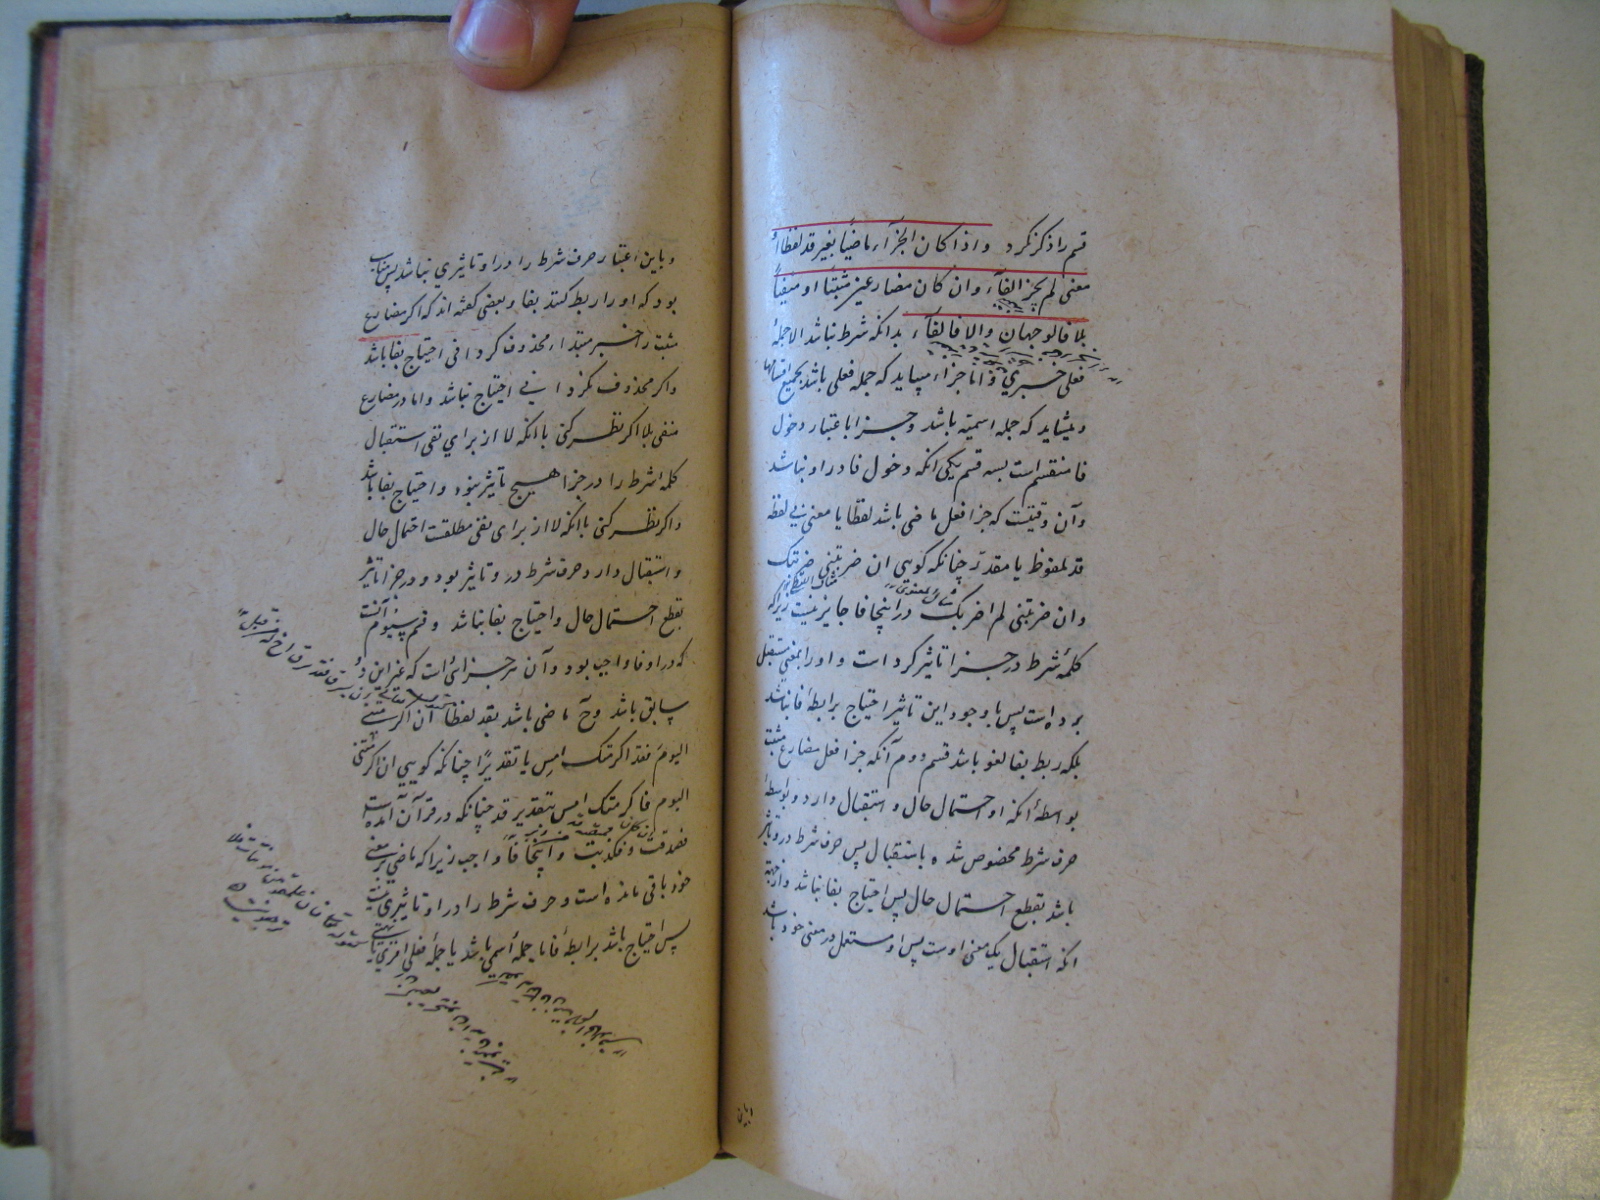 قسم را ذکر نکرد و اذا کان الجزآء ماضیاً بغیر قد لفظاً او
معنی لم یجز الفآء و ان کان مضارعین مثبتاً او منفیاً
بلا فالوجهان والا فالفآء بدانکه شرط نباشد الا جملهٔ
فعلی خبری و اما جزاء میباید که جمله فعلی باشد بجمیع اقسامها
و میشاید که جمله اسمیّه باشد و جزا باعتبار دخول
فا منقسم است بسه قسم یکی انکه دخول فا در او نباشد
و آن وقتیست که جزا فعل ماضی باشد لفظاً یا معنی بی لفظه
قد ملفوظ یا مقدّر چنانکه گویی ان ضربتنی ضربتک
و ان ضربتنی لم اضربک در اینجا فا جایز نیست زیرا که
کلمهٔ شرط در جزا تاثیر کرد است و او را بمعنی مستقبل
برده است پس با وجود این تاثیر احتیاج برابطهٔ فا نباشد
بلکه ربط بفا لغو باشد قسم دوم آنکه جزا فعل مضارع مثبت
بواسطهٔ انکه او احتمال حال و استقبال دارد و بواسطهٔ
حرف شرط مخصوص شده باستقبال پس حرف شرط در و تاثیر
باشد بقطع احتمال حال پس احتیاج بفا نباشد و از جهة
انکه استقبال یک معنی اوست پس او مستعمل در معنی خود باشد
و باین اعتبار حرف شرط را در او تاثیری نباشد پس مناسب
بود که او را ربط کنند بفا و بعضی گفته اند که اگر مضارع
مثبت را خبر مبتداء محذوف گردانی احتیاج بفا باشد
و اگر محذوف نگردانی احتیاج نباشد و اما در مضارع
منفی بلا اگر نظر کنی بانکه لا از برای نفی استقبال
کلمه شرط را در جزا هیچ تاثیر نبود و احتیاج بفا باشد
و اگر نظر کنی بانکه لا از برای نفی مطلقست احتمال حال
و استقبال دارد و حرف شرط در و تاثیر بود و در جزا تاثیر
بقطع احتمال حال و احتیاج بفا نباشد و قسم سیوم آنست
که در او فا واجب بود و آن هر جزائی است که غیر این دو
سابق باشد و آن ماضی باشد بقد لفظاً ان اکرمتنی
الیوم فقد اکرمتک امس یا تقدیرًا چنانکه گویی ان اکرمتنی
الیوم فاکرمتک امس بتقدیر قد چنانکه در قرآن آمده است
فصدقت و فکذبت و اینجا فا واجب زیرا که ماضی بمعنی
خود باقی مانده است و حرف شرط را در او تاثیری نیست
پس احتیاج باشد برابطهٔ فا یا جملهٔ اسمی باشد یا جملهٔ فعلی امری یا